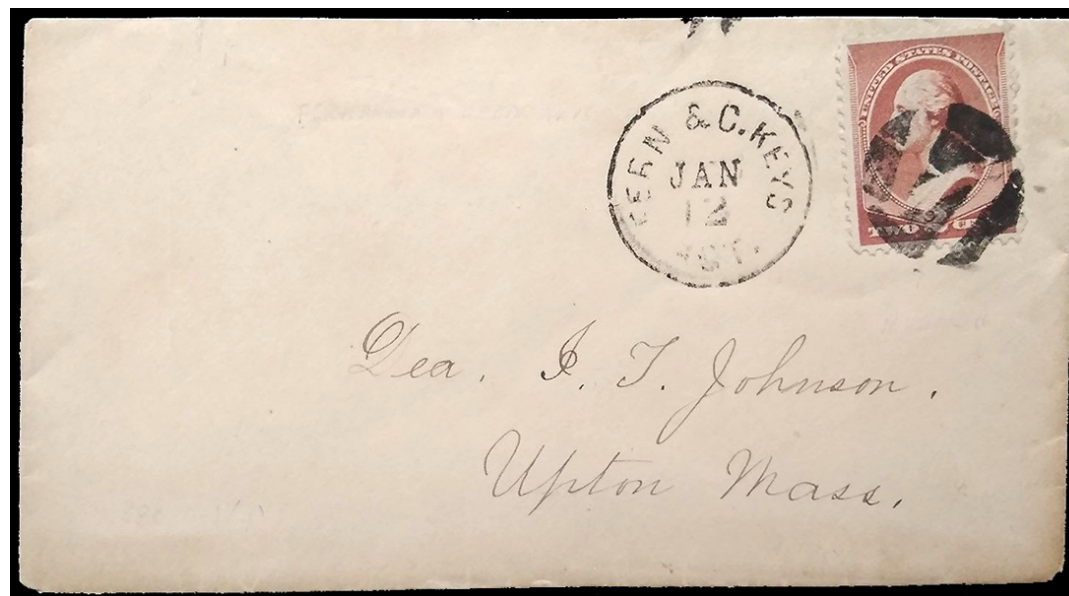 FERN & C. KEYS
JAN
12
UNITED STATES POSTAGE
TWO
Dea. I. T. Johnson.
Upton Mass.